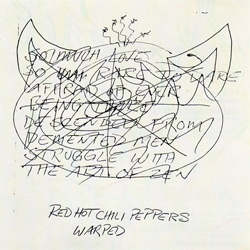 SO MUCH LOVE
SO RARE TO DARE
AFRAID OF EVER
BEING
DESCENDENT FROM
DEMENTED MEN
STRUGGLE WITH
THE ART OF ZEN
RED HOT CHILI PEPPERS
WARPED